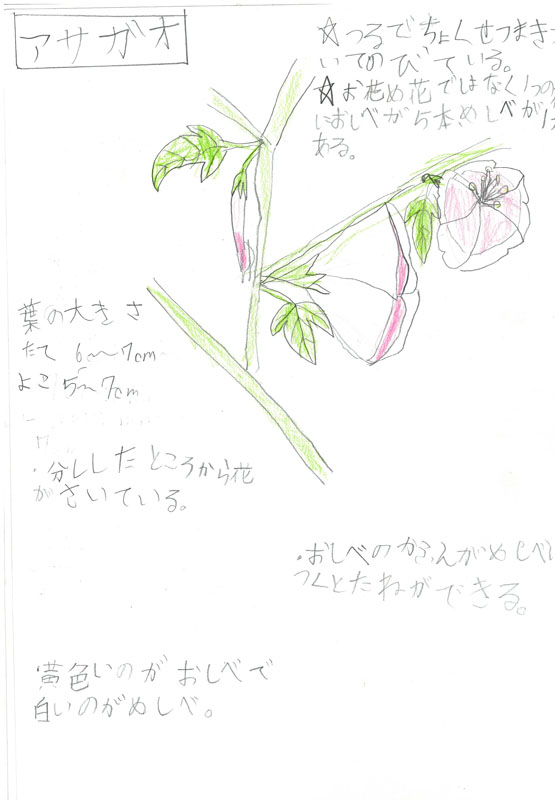 アサガオ
☆つるでちょくせつまきつ
いてのびている。
☆お花め花ではなく1つの
におしべが5本めしべが
ある。
葉の大きさ
たて 6〜7cm
よこ 5〜7cm
・分ししたところから花
がさいている。
・おしべのかふんがめしべに
つくとたねができる。
黄色いのがおしべで
白いのがめしべ。